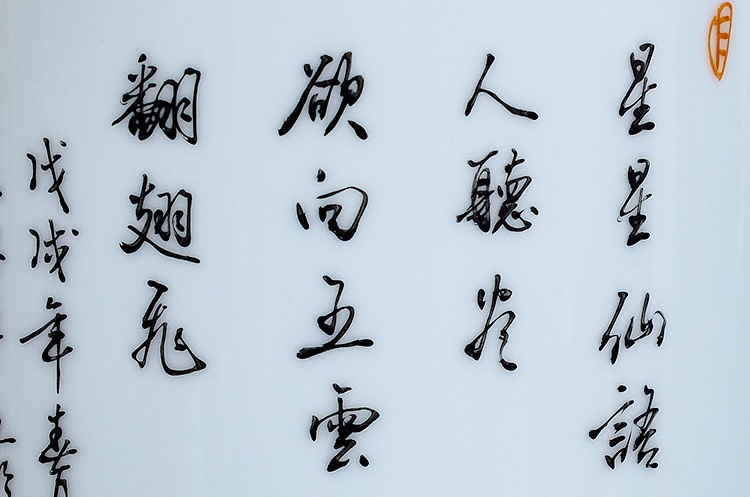 星星仙語
人聽尽
欲向五雲
翻翅飛
戊戌年春